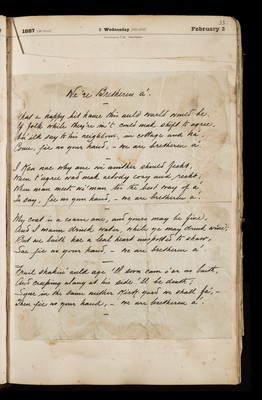 33.
1887 2 Wednesday February 2
We're Bretheren a'.
What a happy bit hame this auld warld would be,
If folk while they're in't could mak shift to agree,
An' ilk say to his neighbour, in cottage and ha',
Come, gie us your hand, – we are bretheren a'.
I Ken nae why ane wi' anither should fecht,
When t'agree wad mak aebody cosy and recht,
When man meets wi' man 'tis the best way of a'
To say, gie us your hand, – we are bretheren a'.
My coat is a coarse ane, and yours may be fine,
And I maun drink water, while ye may drink wine,
But we baith hae a leal heart unspotted to shaw,
Sae gie us your hand – we are bretheren a'.
Frail shakin' auld age 'll soon cam o'er us baith,
And creeping alang at his side 'll be death;
Syne in the same mither Kirk-yard we shall fa', –
Then gie us your hand, – we are bretheren a'.